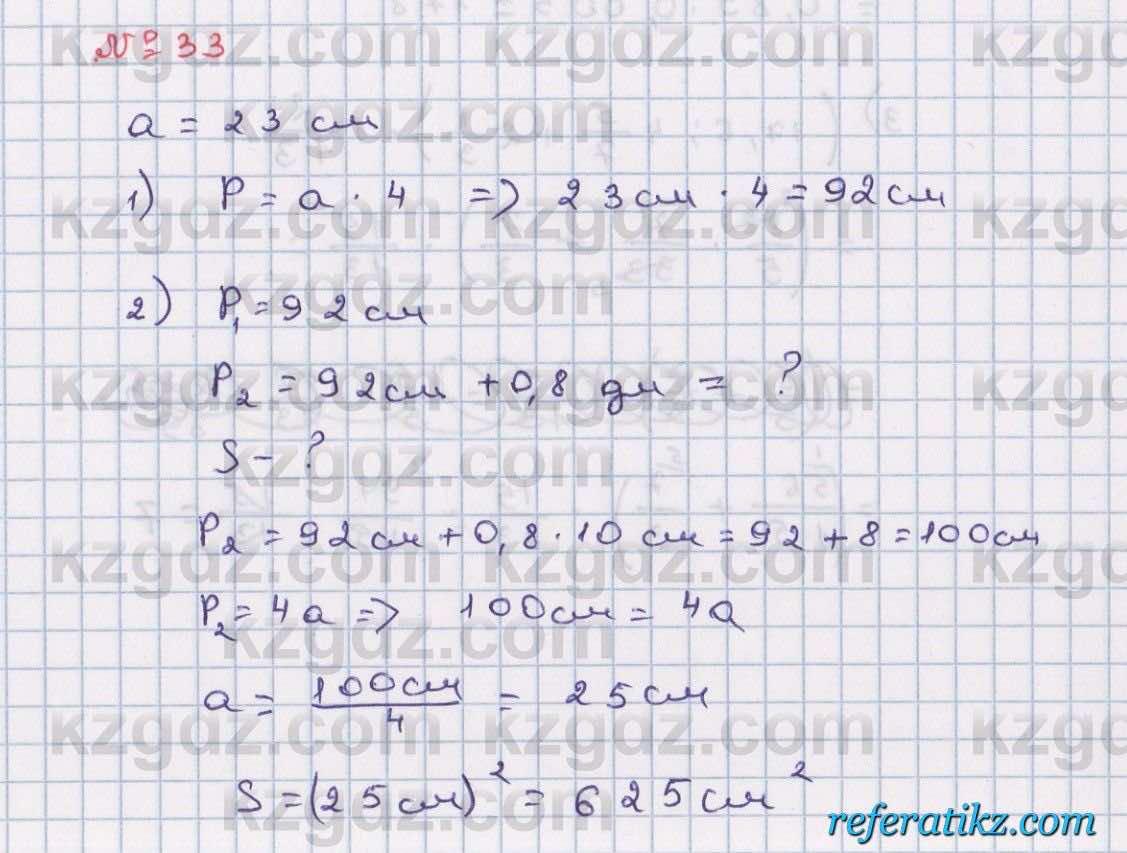 № 33
a = 23 см
1) P = a · 4 => 23 см · 4 = 92 см
2) P₁ = 92 см
P₂ = 92 см + 0,8 дм = ?
S - ?
P₂ = 92 см + 0,8 · 10 см = 92 + 8 = 100 см
P₂ = 4a => 100 см = 4a
a = 100 см / 4 = 25 см
S = (25 см)² = 625 см²
kzgdz.com
referatikz.com